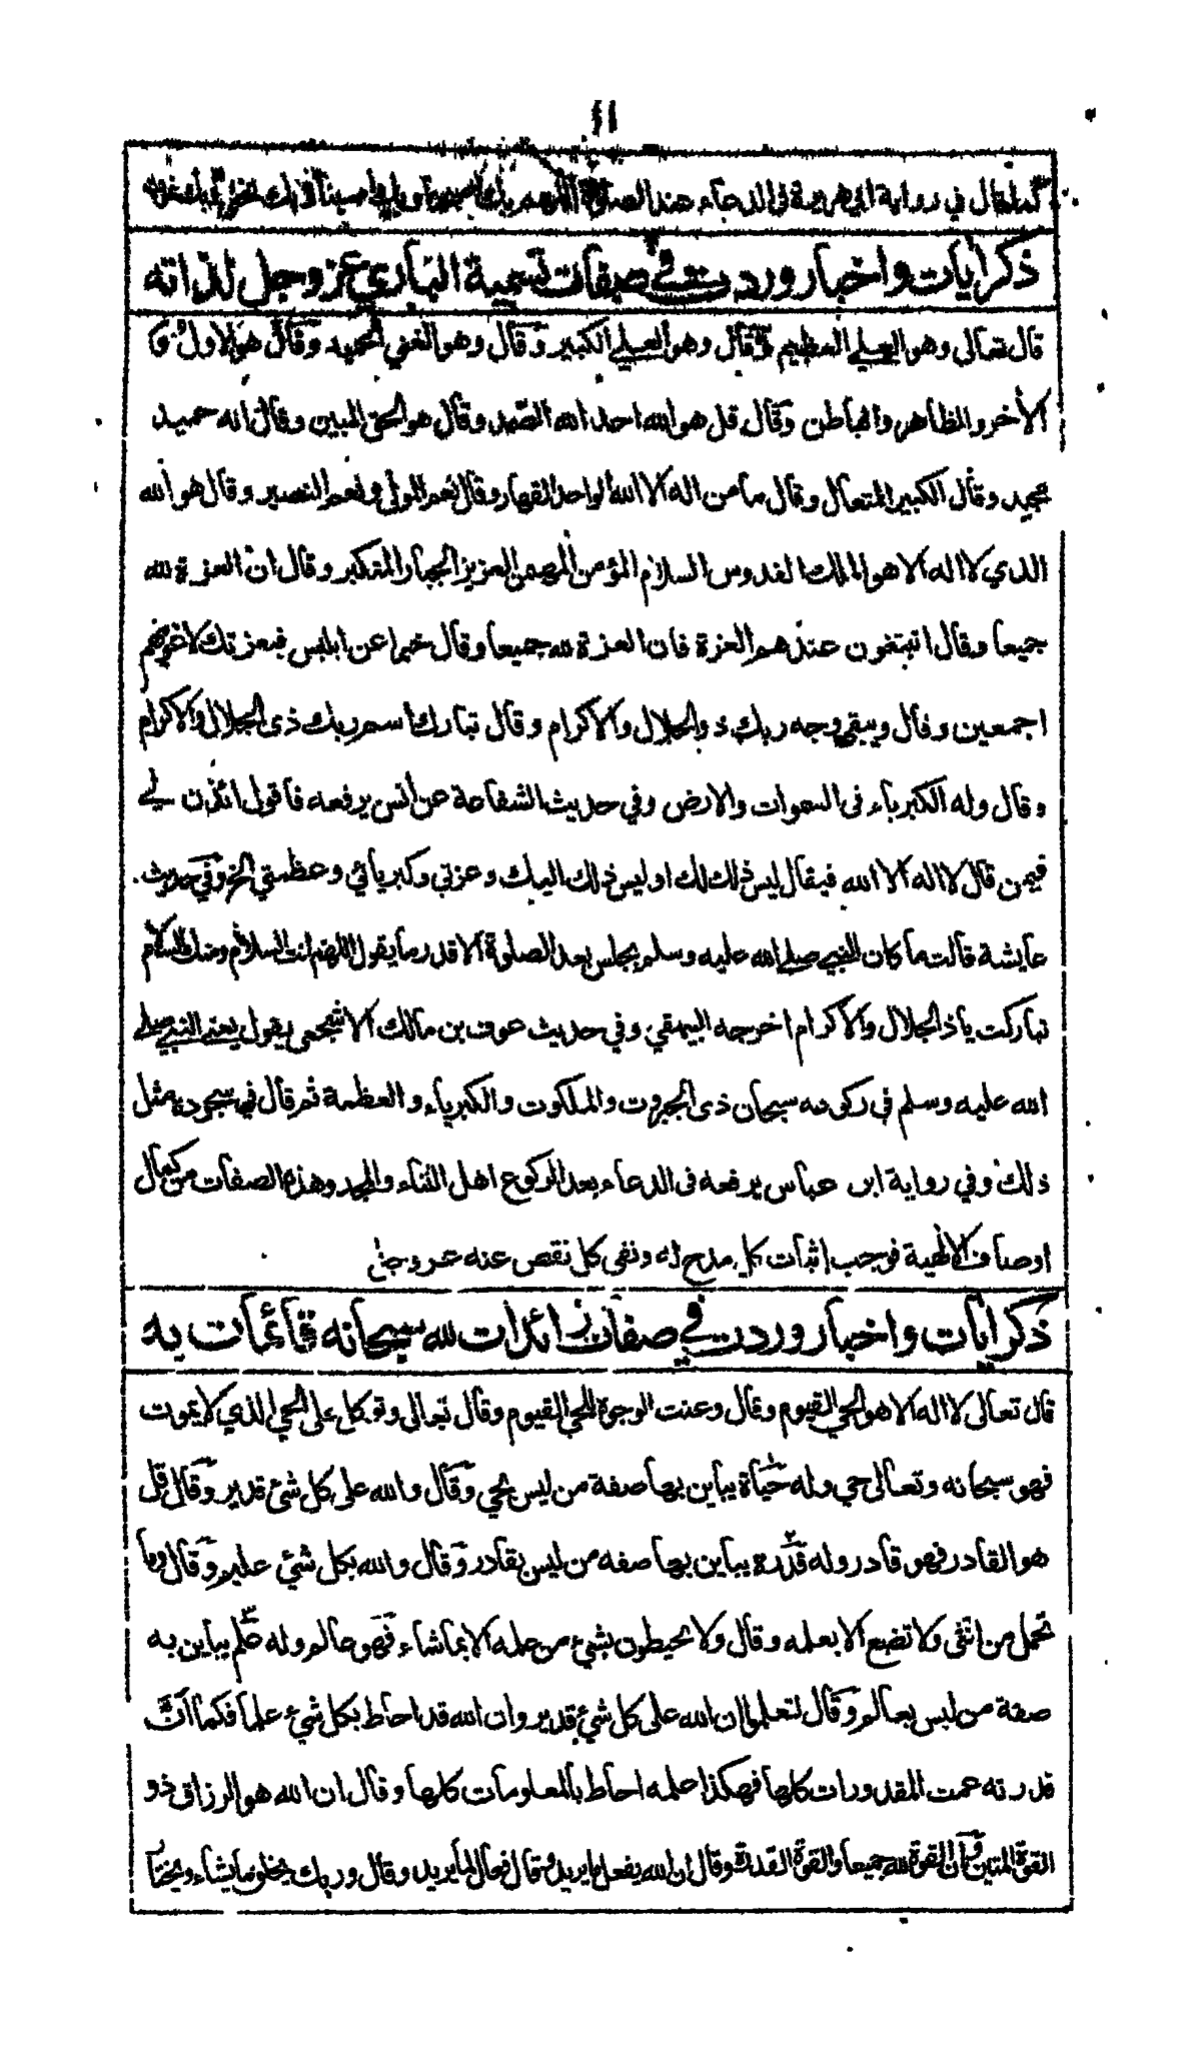 ١١
كما قال في رواية ابي هريرة في الدعاء عند الصلوة اللهم
ذكر ايات واخبار وردت في صفات تسمية الباري عز وجل لذاته
قال تعالى وهو العلي العظيم وقال وهو العلي الكبير وقال وهو الغني الحميد وقال هو الاول و
الأخر والظاهر والباطن وقال قل هو الله احد الله الصمد وقال هو الحق المبين وقال انه حميد
مجيد وقال الكبير المتعال وقال ما من اله الا الله الواحد القهار وقال نعم المولى ونعم النصير وقال هو الله
الذي لا اله الا هو الملك القدوس السلام المؤمن المهيمن العزيز الجبار المتكبر وقال ان العزة لله
جميعا وقال ايبتغون عندهم العزة فان العزة لله جميعا وقال خبرا عن ابليس فبعزتك لاغوينهم
اجمعين وقال ويبقى وجه ربك ذو الجلال والاكرام وقال تبارك اسم ربك ذى الجلال والاكرام
وقال وله الكبرياء فى السموات والارض وفي حديث الشفاعة عن انس يرفعه فاقول ائذن لي
فيمن قال لا اله الا الله فيقال ليس ذلك لك او ليس ذلك اليك وعزتي وكبريائي وعظمتي الخ وفي حديث
عايشة قالت ما كان النبي صلى الله عليه وسلم يجلس بعد الصلوة الا قدر ما يقول اللهم انت السلام ومنك السلام
تباركت يا ذا الجلال والاكرام اخرجه البيهقي وفي حديث عوف بن مالك الاشجعي يقول يعني النبي صلى
الله عليه وسلم في ركوعه سبحان ذى الجبروت والملكوت والكبرياء والعظمة ثم قال في سجوده مثل
ذلك وفي رواية ابن عباس يرفعه فى الدعاء بعد الركوع اهل الثناء والمجد وهذه الصفات من كمال
اوصاف الالهية فوجب اثبات كل مدح له ونفى كل نقص عنه عز وجل
ذكر ايات واخبار وردت في صفات زائدات لله سبحانه قائمات به
قال تعالى لا اله الا هو الحي القيوم وقال وعنت الوجوه للحي القيوم وقال تعالى وتوكل على الحي الذي لا يموت
فهو سبحانه وتعالى حي وله حياة يباين بها صفة من ليس بحي وقال والله على كل شئ قدير وقال قل
هو القادر فهو قادر وله قدرة يباين بها صفه من ليس بقادر وقال والله بكل شئ عليم وقال وما
تحمل من انثى ولا تضع الا بعلمه وقال ولا يحيطون بشئ من علمه الا بما شاء فهو عالم وله علم يباين به
صفة من ليس بعالم وقال لتعلموا ان الله على كل شئ قدير وان الله قد احاط بكل شئ علما فكما ان
قدرته عمت المقدورات كلها فهكذا علمه احاط بالمعلومات كلها وقال ان الله هو الرزاق ذو
القوة المتين وقال ان القوة لله جميعا والقوة القدرة وقال ان الله يفعل ما يريد وقال فعال لما يريد وقال وربك يخلق ما يشاء ويختار